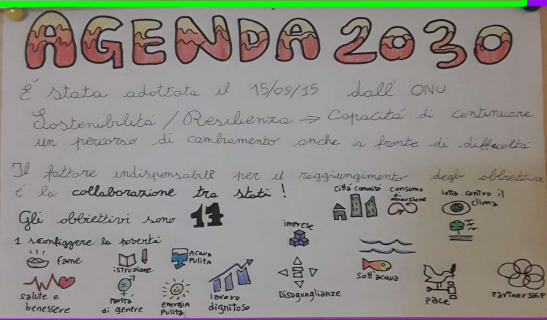 AGENDA 2030
È stata adottata il 15/09/15 dall'ONU
Sostenibilità / Resilienza → Capacità di continuare
un percorso di cambiamento anche a fronte di difficoltà
Il fattore indispensabile per il raggiungimento degli obbiettivi
è la collaborazione tra stati !
Gli obbiettivi sono 17
1 sconfiggere la povertà
fame
istruzione
Acqua
Pulita
salute e
benessere
Parità
di genere
energia
Pulita
lavoro
dignitoso
imprese
Disuguaglianze
città
consumo
di
lotta contro il
clima
sott'acqua
Pace
Partnership